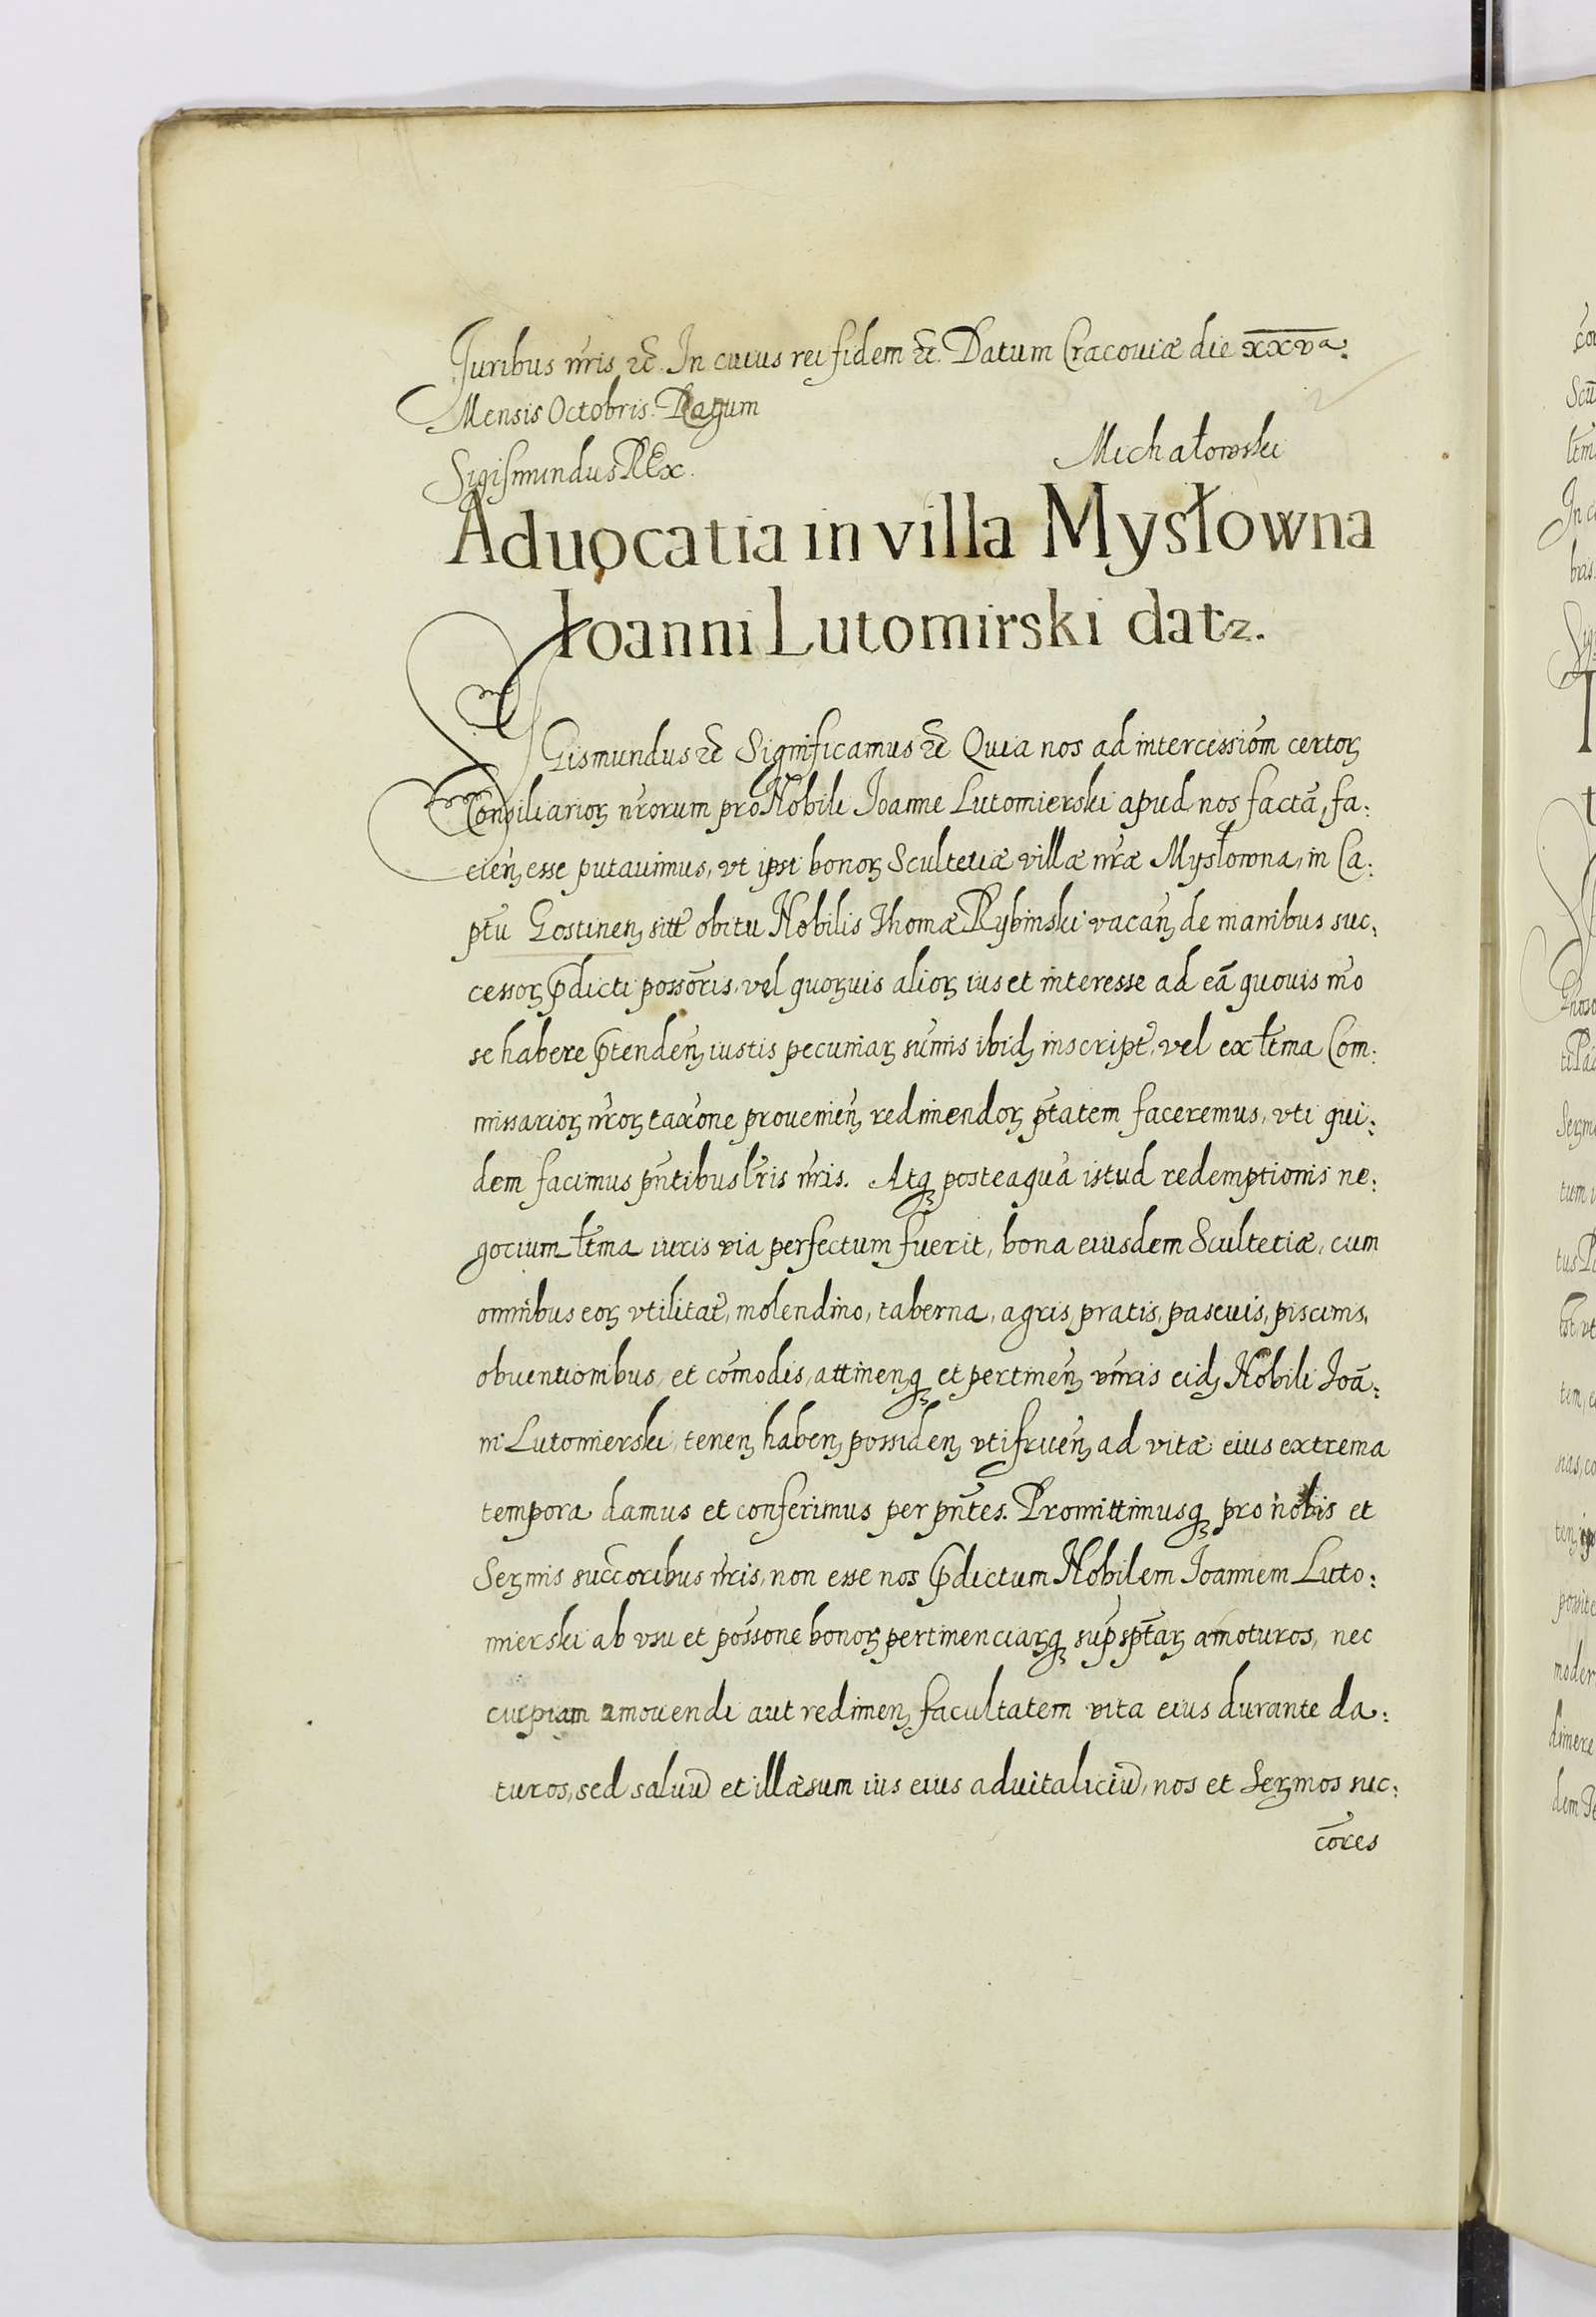 Juribus nr̃is ꝛc̃. In cuius rei fidem ꝛc̃. Datum Cracouiæ die xxvª.
Mensis Octobris. Ragum
Sigismundus REx.
Michałowski
Aduocatia in villa Mysłowna
Ioanni Lutomirski datꝛ.
SIGismundus ꝛc̃ Significamus ꝛc̃ Quia nos ad intercessiõm certoꝝ
Consiliarioꝝ nr̃orum pro Nobili Ioanne Lutomierski apud nos factã, fa:
cieñ esse putauimus, vt ipsi bonoꝝ Scultetiæ villæ nr̃æ Mysłowna, in Ca:
ptũ Gostineñ sitt̃ obitu Nobilis Thomæ Rybinski vacañ de manibus suc:
cessoꝝ p̃dicti possõris, vel quoꝝuis alioꝝ ius et interesse ad eã quouis mõ
se habere p̃tendeñ iustis pecuniaꝝ sum̃is ibidꝫ inscript̃, vel ex lt̃ma Com:
missarioꝝ nr̃oꝝ taxõne prouenieñ redimendoꝝ pt̃atem faceremus, vti qui:
dem facimus pñtibus lr̃is nr̃is. Atqꝫ posteaquã istud redemptionis ne:
gocium lt̃ma iuris via perfectum fuerit, bona eiusdem Scultetiæ, cum
omnibus eoꝝ vtilitat̃, molendino, taberna, agris, pratis, pascuis, piscinis,
obuentionibus, et cõmodis, attinenqꝫ et pertineñ vnĩris eidꝫ Nobili Ioã:
ni Lutomierski, teneñ habeñ possideñ vtifrueñ ad vitæ eius extrema
tempora damus et conferimus per pñtes. Promittimusqꝫ pro nobis et
Serꝫmis succc̃oribus nr̃is, non esse nos p̃dictum Nobilem Ioannem Luto:
mierski ab vsu et possõne bonoꝝ pertinenciaꝝqꝫ sup̃spt̃aꝝ amoturos, nec
cuipiam amouendi aut redimeñ facultatem vita eius durante da:
turos, sed saluũ et illæsum ius eius aduitaliciũ, nos et Serꝫmos suc:
cõres